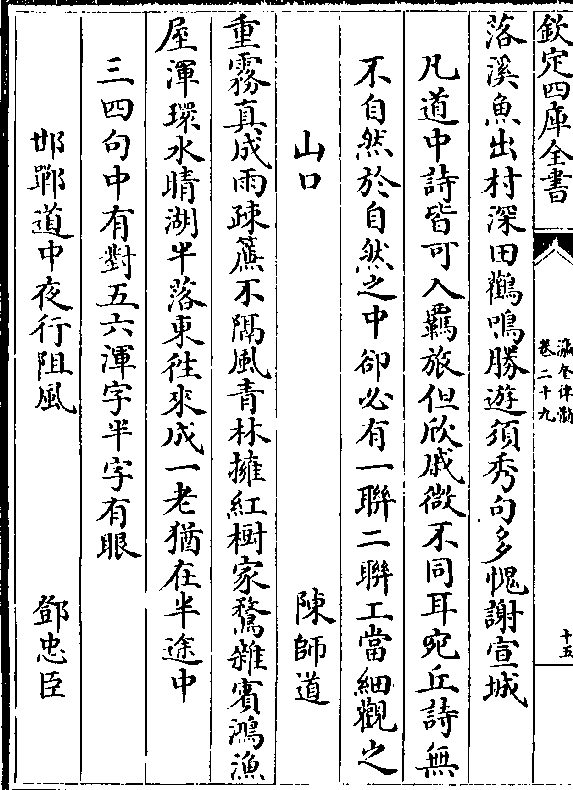 欽定四庫全書
瀛奎律髓
卷二十九
十五
落溪魚出村深田鸛鳴勝遊須秀句多愧謝宣城
凡道中詩皆可入羈旅但欣戚微不同耳宛丘詩無
不自然於自然之中卻必有一聯二聯工當細觀之
山口 陳師道
重霧真成雨疎簾不隔風青林擁紅樹家鶩雜賓鴻漁
屋渾環水晴湖半落東徃來成一老猶在半途中
三四句中有對五六渾字半字有眼
邯鄲道中夜行阻風 鄧忠臣